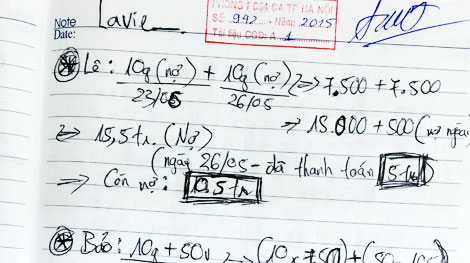 Note
Date:
Lavie
PHÒNG PC64 CA TP HÀ NỘI
SỐ: 992 - Năm: 2015
Tài liệu CQĐ: A 1
Lê: 10g (nợ) + 10g (nợ) => 7.500 + 7.500
23/05 26/05
=> 15.000 + 500 (nợ ngoài
=> 15,5 tr. (Nợ)
(ngày 26/05 - đã thanh toán 5 tr)
=> Còn nợ: 10.5 tr
Bảo: 10g + 50v => (10 x 750) + (50 x 105)